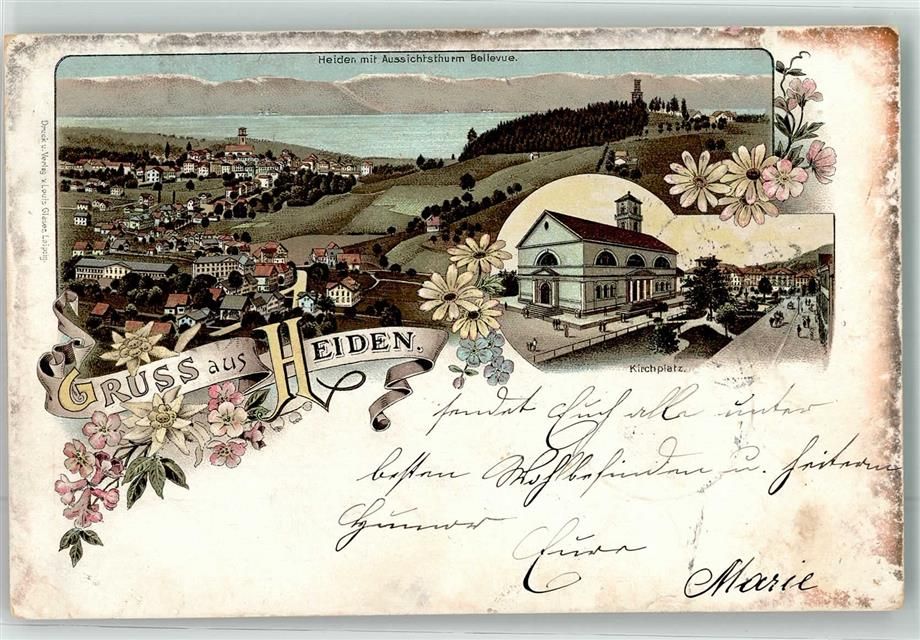 Heiden mit Aussichtsthurm Bellevue.
Druck u. Verlag v. Louis Glaser, Leipzig.
GRUSS aus HEIDEN.
Kirchplatz.
sendet Euch alle unter
besten Wohlbefinden u. heiterm
Humor
Eure
Marie